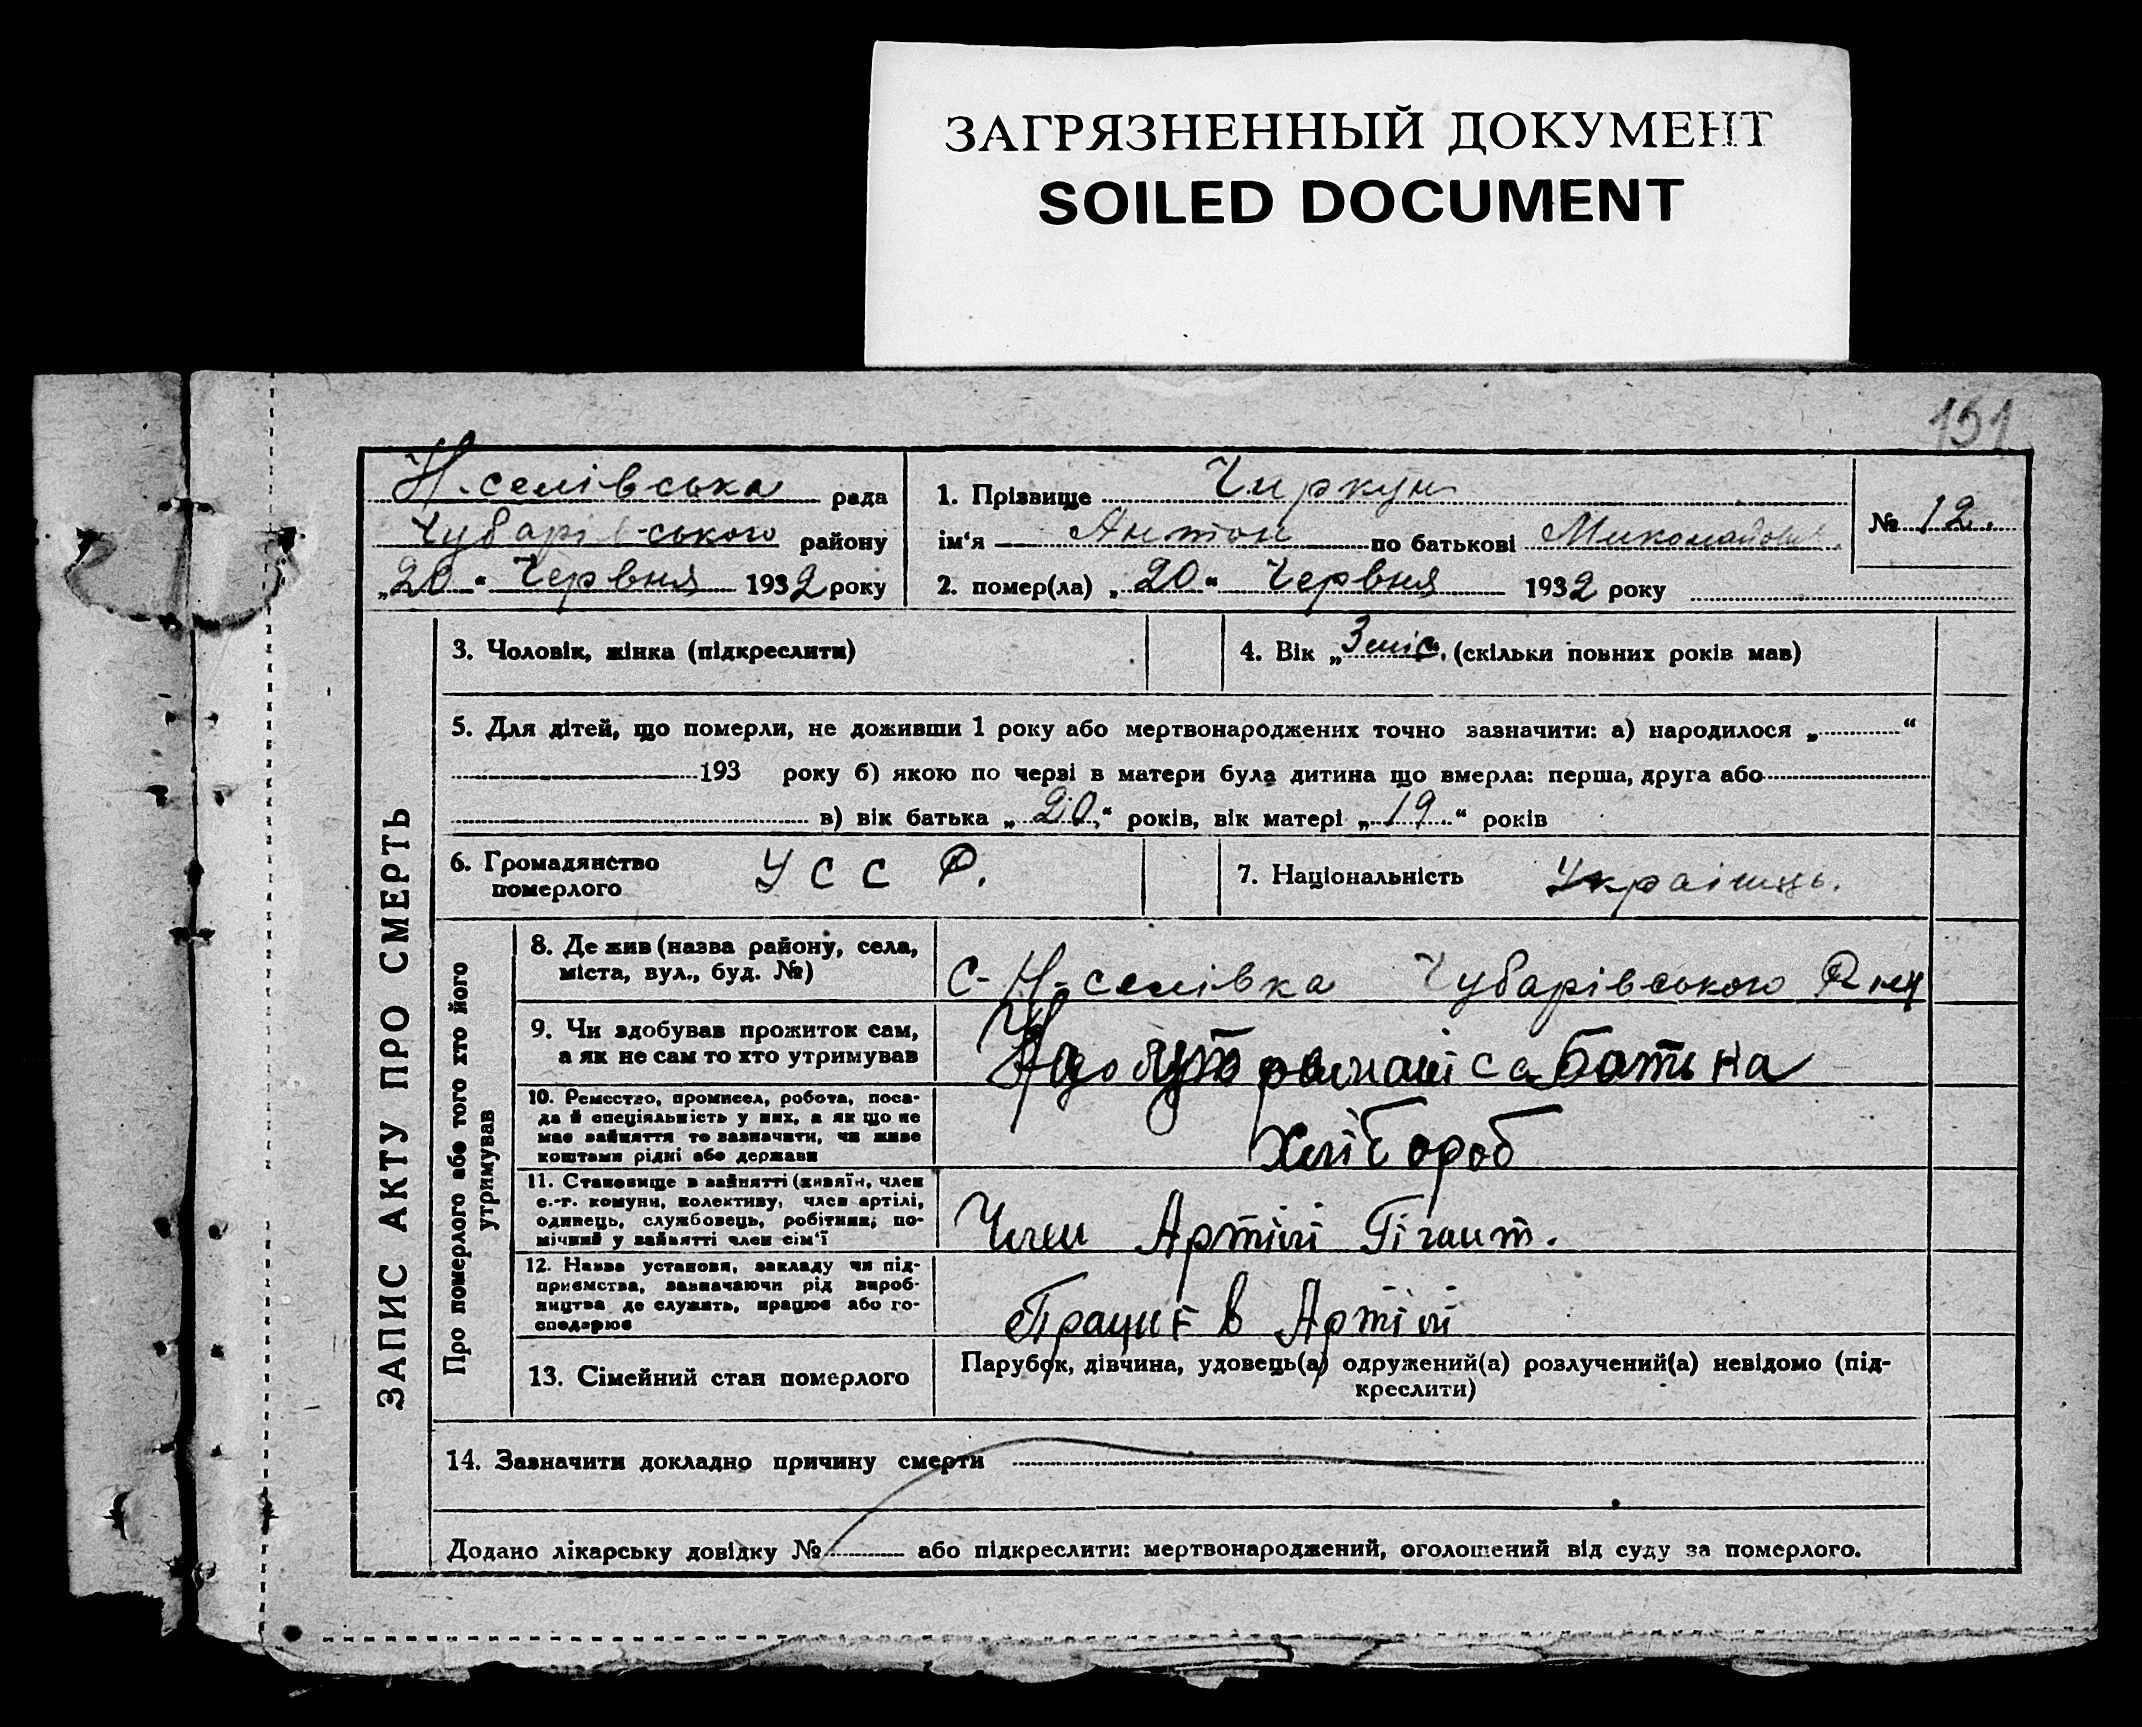 ЗАГРЯЗНЕННЫЙ ДОКУМЕНТ
SOILED DOCUMENT
151
Н-селівська рада
Чубарівського району
„20“ Червня 1932 року
1. Прізвище Чиркун
ім‘я Антон по батькові Миколайович
2. помер(ла) „20“ Червня 1932 року
№ 12.
ЗАПИС АКТУ ПРО СМЕРТЬ
3. Чоловік, жінка (підкреслити)
4. Вік „3 міс“ (скільки повних років мав)
5. Для дітей, що померли, не доживши 1 року або мертвонароджених точно зазначити: а) народилося „ “
193 року б) якою по черві в матери була дитина що вмерла: перша, друга або
в) вік батька „20“ років, вік матері „19“ років
6. Громадянство
померлого
У С С Р.
7. Національність Украінць.
Про померлого або того хто його
утримував
8. Де жив (назва району, села,
міста, вул., буд. №)
С-Н-селівка Чубарівського Р-ну
9. Чи здобував прожиток сам,
а як не сам то хто утримував
батька
10. Ремество, промисел, робота, поса-
да й спеціяльність у них, а як що не
має зайняття то зазначити, чи живе
коштами рідні або держави
Хлібороб
11. Становище в зайнятті (хазяїн, член
с.-г. комуни, колективу, член артілі,
одинець, службовець, робітник, по-
мічний у зайнятті член сім‘ї
Член Артілі Гігант.
12. Назва установи, закладу чи під-
приємства, зазначаючи рід вироб-
ництва де служить, працює або го-
сподарює
Працює в Артілі
13. Сімейний стан померлого
Парубок, дівчина, удовець(а) одружений(а) розлучений(а) невідомо (під-
креслити)
14. Зазначити докладно причину смерти
Додано лікарську довідку № або підкреслити: мертвонароджений, оголошений від суду за померлого.